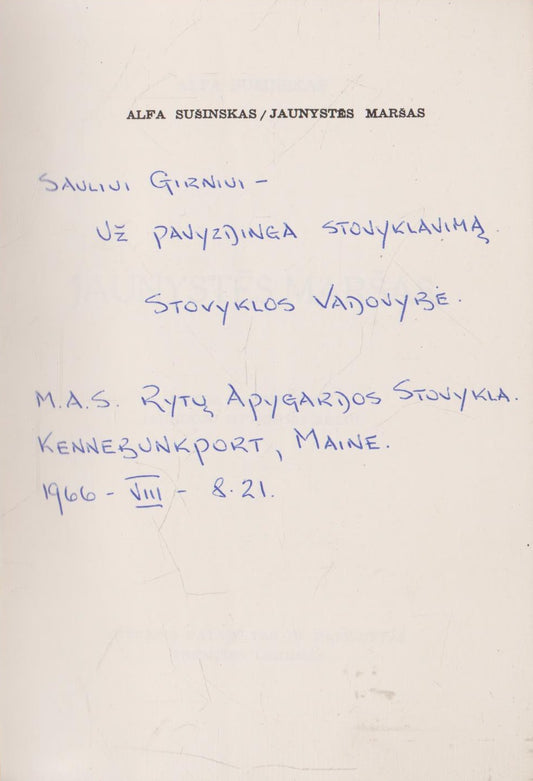 ALFA SUŠINSKAS/JAUNYSTĖS MARŠAS
SAULIUI GIRNIUI –
UŽ PAVYZDINGA STOVYKLAVIMĄ.
STOVYKLOS VADOVYBĖ.
M.A.S. RYTŲ APYGARDOS STOVYKLA.
KENNEBUNKPORT, MAINE.
1966 – VIII – 8.21.